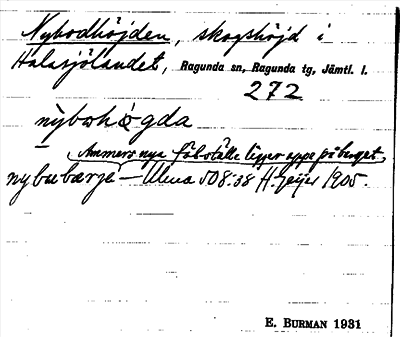 Nybodhöjden, skogshöjd i
Halasjölandet, Ragunda sn, Ragunda tg, Jämtl. l.
272
nỳbωhö̀gda
Ammers nya fäbställe ligger uppe på berget
nybωbærjé – Ulma 508:38 H. Geijer 1905.
E. BURMAN 1931